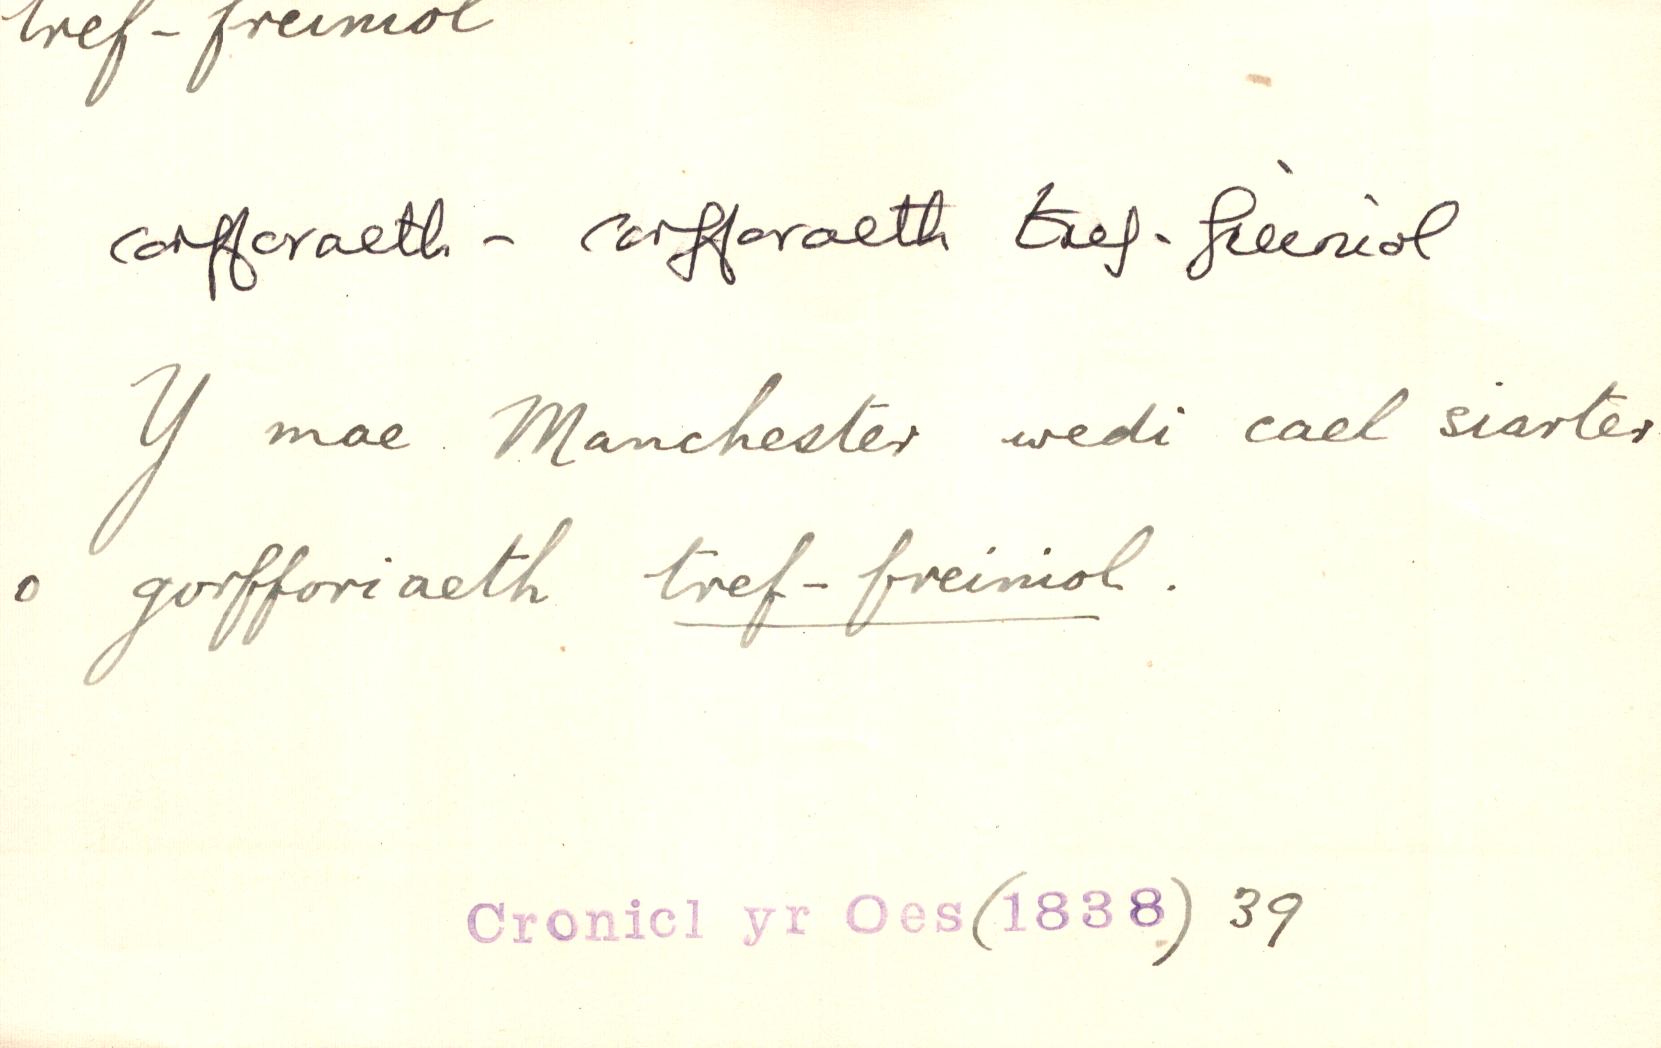 tref-freiniol
corfforaeth - corfforaeth tref-freiniol
Y mae Manchester wedi cael siarter
o gorfforiaeth tref-freiniol.
Cronicl yr Oes (1838) 39